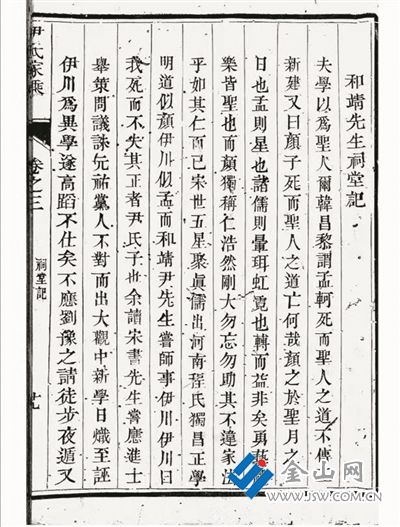 和靖先生祠堂記
夫學以爲聖人爾韓昌黎謂孟軻死而聖人之道不傳
新建又曰顏子死而聖人之道亡何哉顏之於聖月之
日也孟則星也諸儒則暈珥虹霓也轉而益非矣勇藝
樂皆聖也而顏獨稱仁浩然剛大勿忘勿助其不違家法
乎如其仁而已宋世五星聚眞儒出河南程氏獨昌正學
明道似顏伊川似孟而和靖尹先生嘗師事伊川伊川曰
我死而不失其正者尹氏子也余讀宋書先生嘗應進士
舉策問議誅元祐黨人不對而出大觀中新學日熾至誣
伊川爲異學遂高蹈不仕矣不應劉豫之請徒步夜遁又
尹氏家乘
卷之三
祠堂記
金山网
WWW.JSW.COM.CN